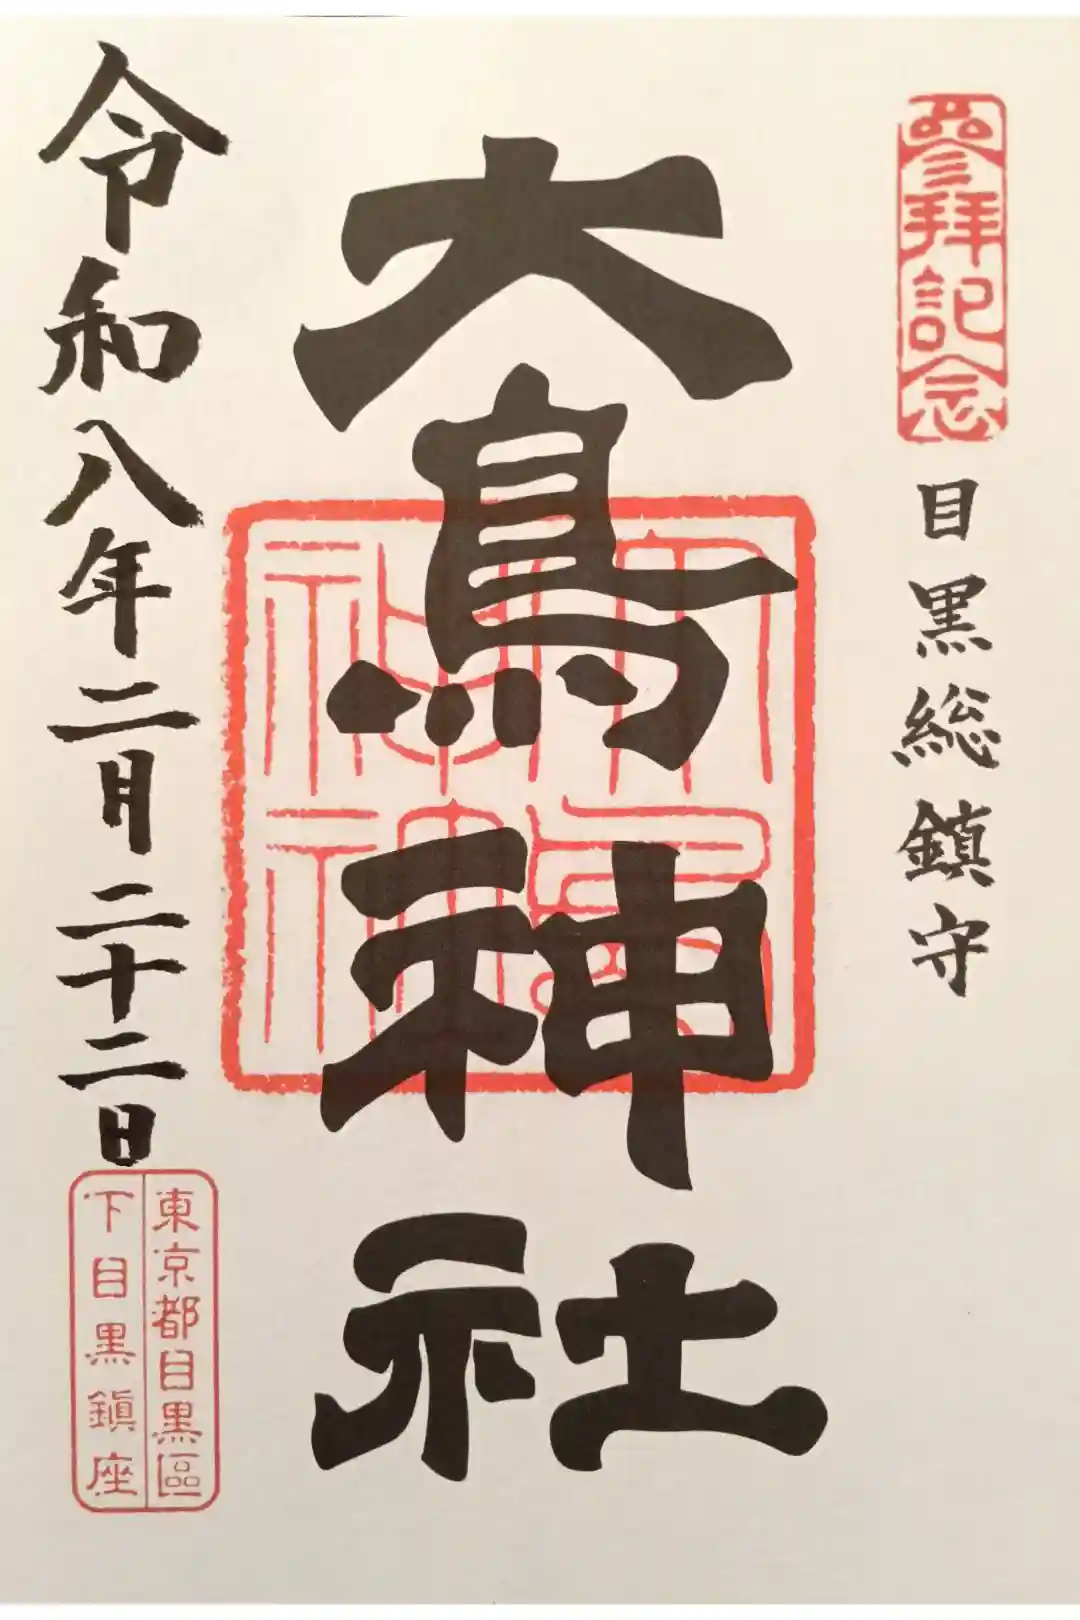 參拝記念
目黒総鎮守
大鳥神社
大鳥神社
令和八年二月二十二日
東京都目黒區
下目黒鎮座